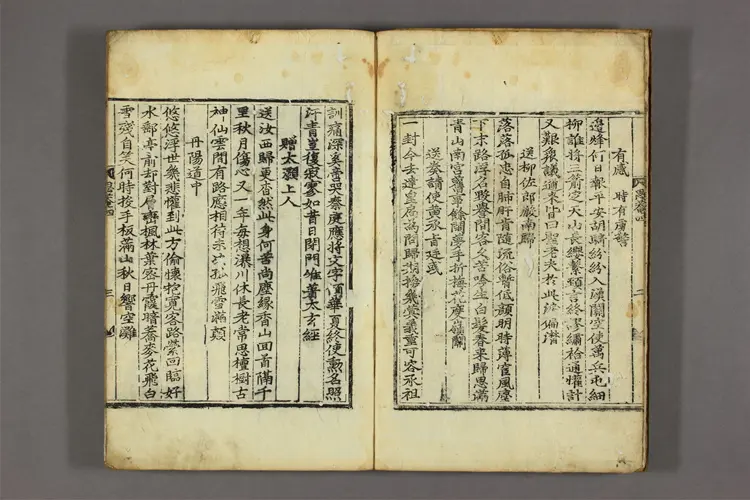 有感 時有虜警
邊烽何日報平安胡騎紛紛入漢關空使萬兵屯細
柳誰將三箭定天山長纓繫頸言終謬繡袷通懽計
又艱衆議邇來皆曰聖老夫於此涕偏潸
送柳佐郎嚴南歸
落落孤忠自肺肝肯隨流俗暫低顏明時薄宦風塵
下末路浮名毀譽間客久苦吟生白髮春來歸思滿
青山南宮舊事餘閒夢手折梅花度嶺關
送奏請使黃承旨廷彧
一封今去達皇扃爲問歸期拾幾蓂義重可容承祖
訓痛深奚啻哭秦庭應將文字傳華夏終使勳名照
汗青豈復寂寥如昔日閉門唯著太玄經
贈太顚上人
送汝西歸更杳然此身何苦尚塵緣香山回首隔千
里秋月傷心又一年每想瀼川休長老常思檀樹古
神仙雲間有路應相待未必孤飛雪滿顚
丹陽道中
悠悠浮世幾悲懽到此方偷懷抱寬客路縈回臨好
水郵亭前却對層巒楓林葉密丹霞暗蕎麥花飛白
雪殘自笑何時投手板滿山秋日響空灘